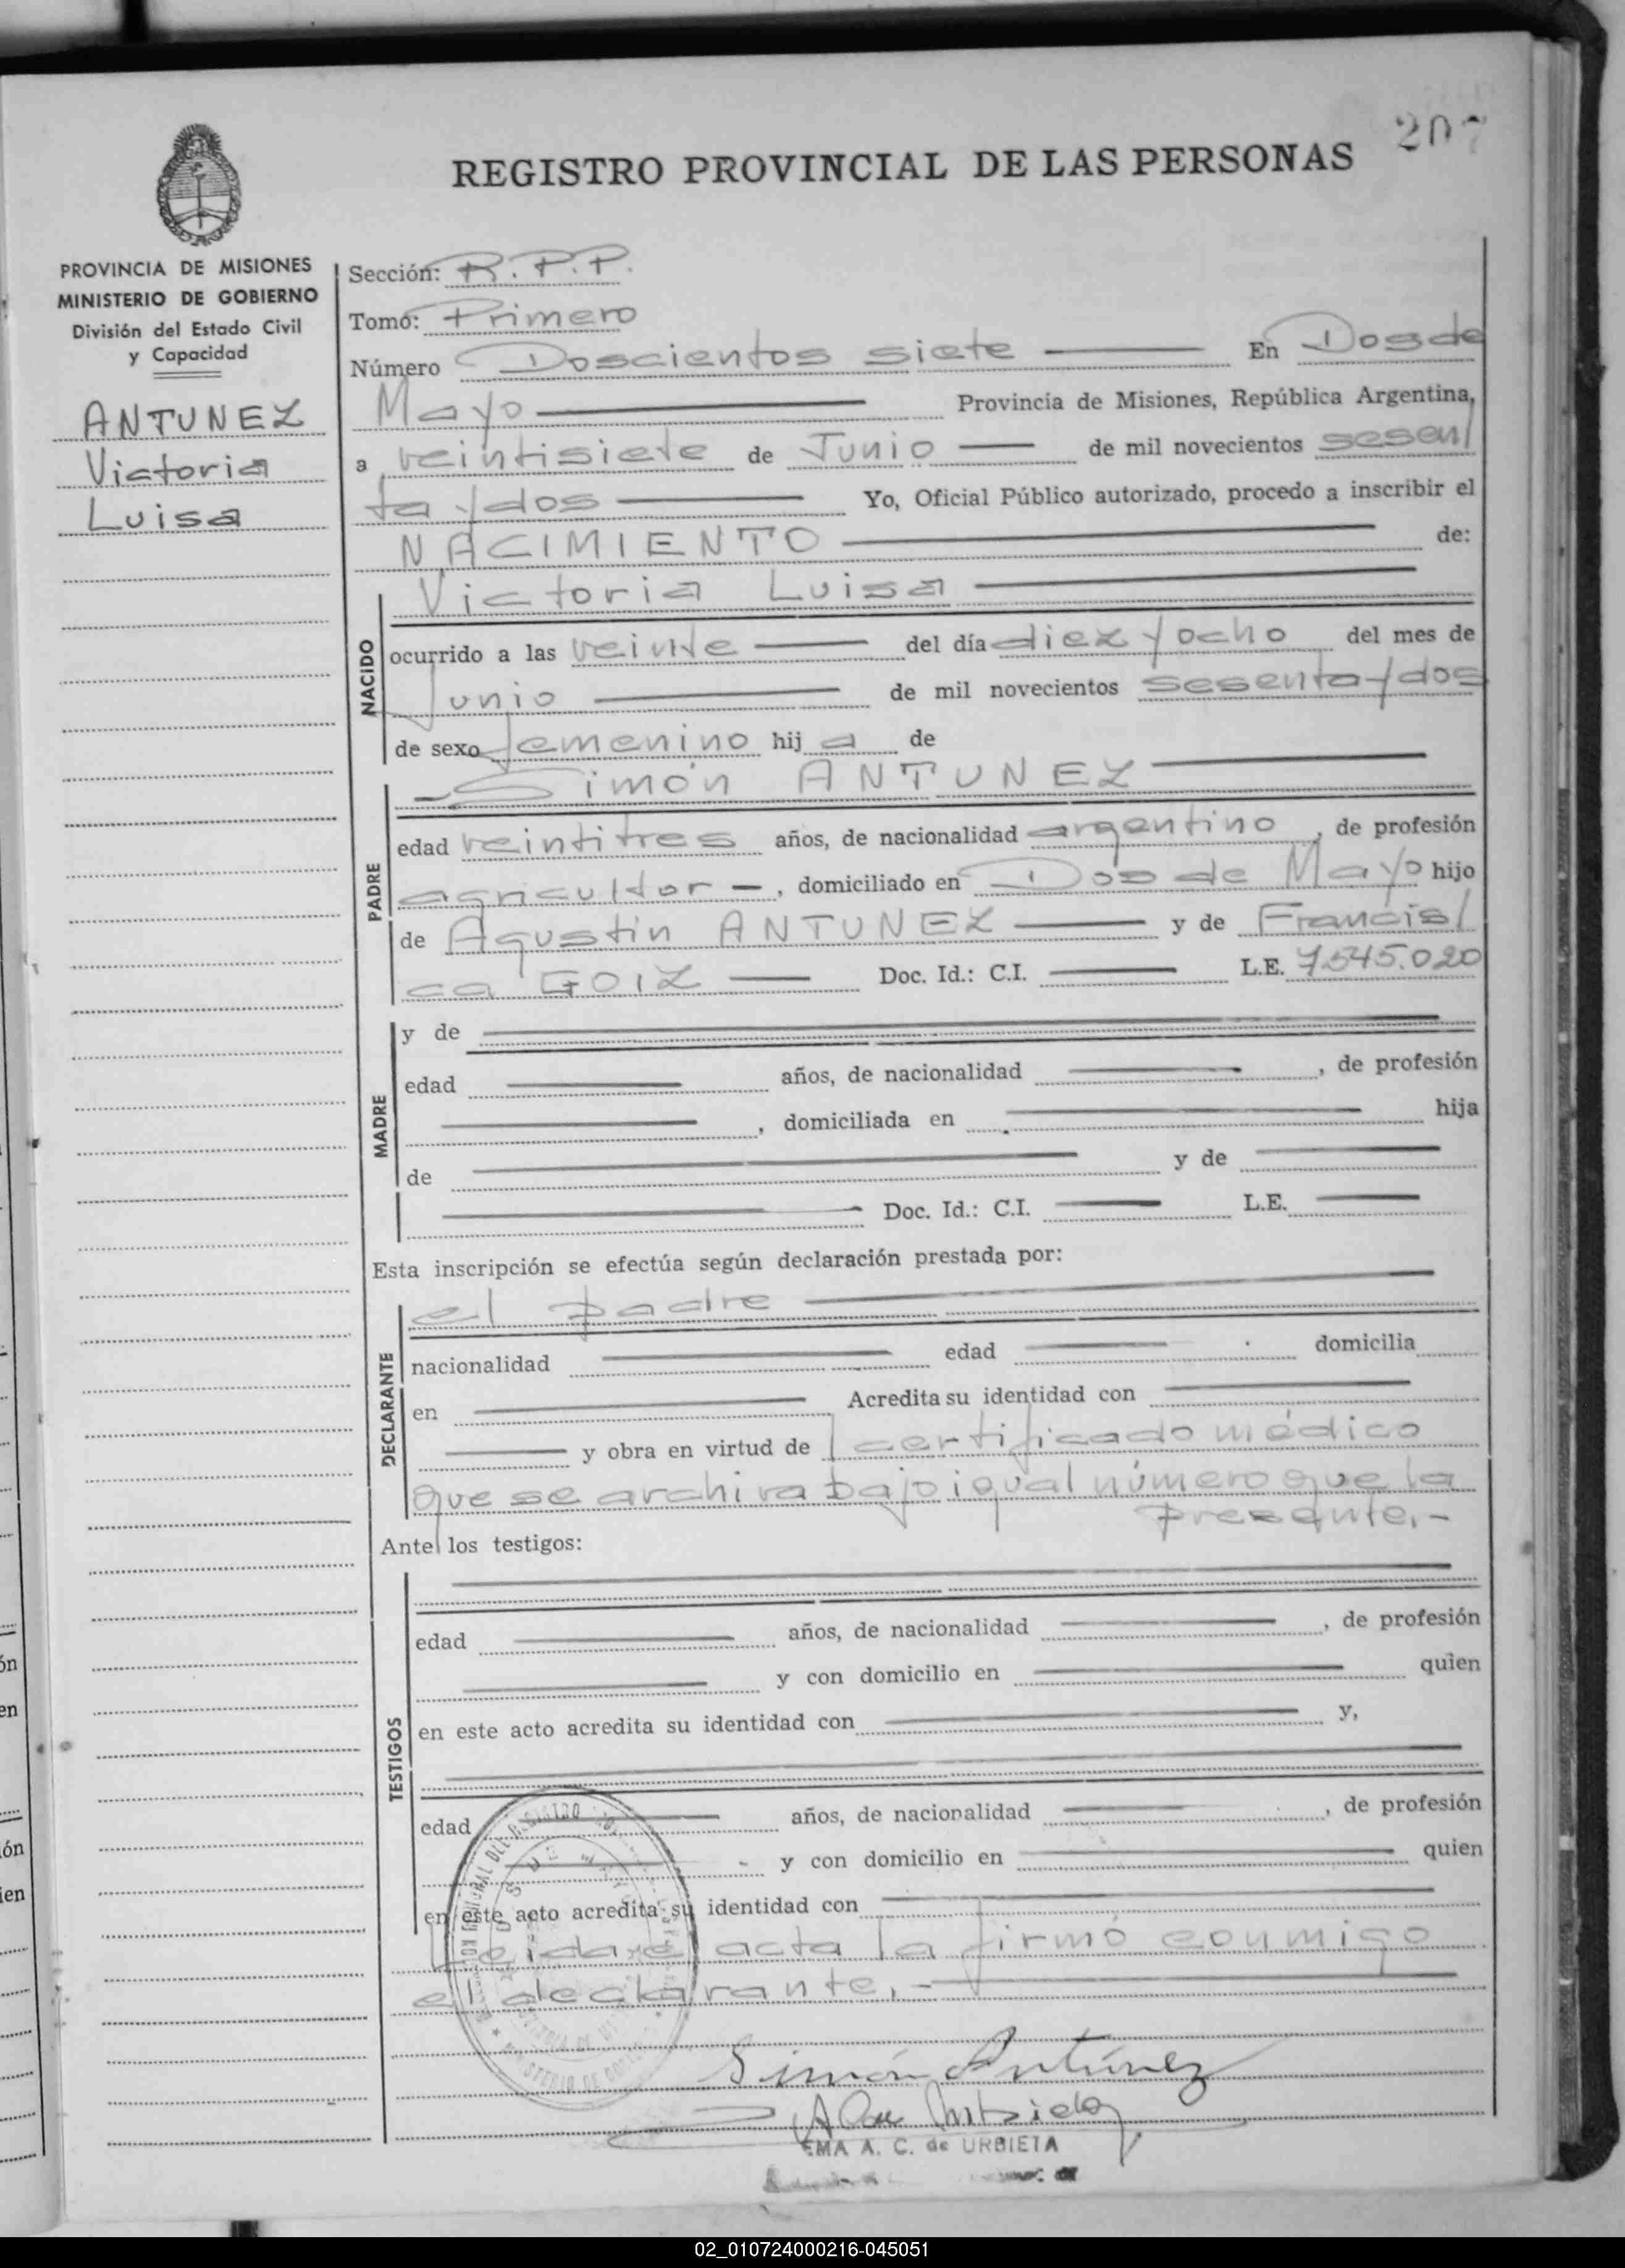 207
REGISTRO PROVINCIAL DE LAS PERSONAS
PROVINCIA DE MISIONES
MINISTERIO DE GOBIERNO
División del Estado Civil
y Capacidad
ANTUNEZ
Victoria
Luisa
Sección: R.P.P.
Tomo: Primero
Número Doscientos siete En Dos de
Mayo Provincia de Misiones, República Argentina,
a veintisiete de Junio de mil novecientos sesen/
ta y dos Yo, Oficial Público autorizado, procedo a inscribir el
NACIMIENTO de:
Victoria Luisa
NACIDO
ocurrido a las veinte del día diez y ocho del mes de
Junio de mil novecientos sesenta y dos
de sexo femenino hij a de
Simón ANTUNEZ
PADRE
edad veintitres años, de nacionalidad argentino, de profesión
agricultor, domiciliado en Dos de Mayo hijo
de Agustin ANTUNEZ y de Francis/
ca GOIZ Doc. Id.: C.I. L.E. 7.545.020
MADRE
y de
edad años, de nacionalidad , de profesión
, domiciliada en hija
de y de
Doc. Id.: C.I. L.E.
Esta inscripción se efectúa según declaración prestada por:
el padre
DECLARANTE
nacionalidad edad domicilia
en Acredita su identidad con
y obra en virtud de certificado médico
que se archiva bajo igual número que la
presente.-
Ante los testigos:
TESTIGOS
edad años, de nacionalidad , de profesión
y con domicilio en quien
en este acto acredita su identidad con y,
edad años, de nacionalidad , de profesión
y con domicilio en quien
en este acto acredita su identidad con
Leida el acta la firmó conmigo
el declarante.-
Simón Antúnez
EMA A. C. de URBIETA
02_010724000216-045051